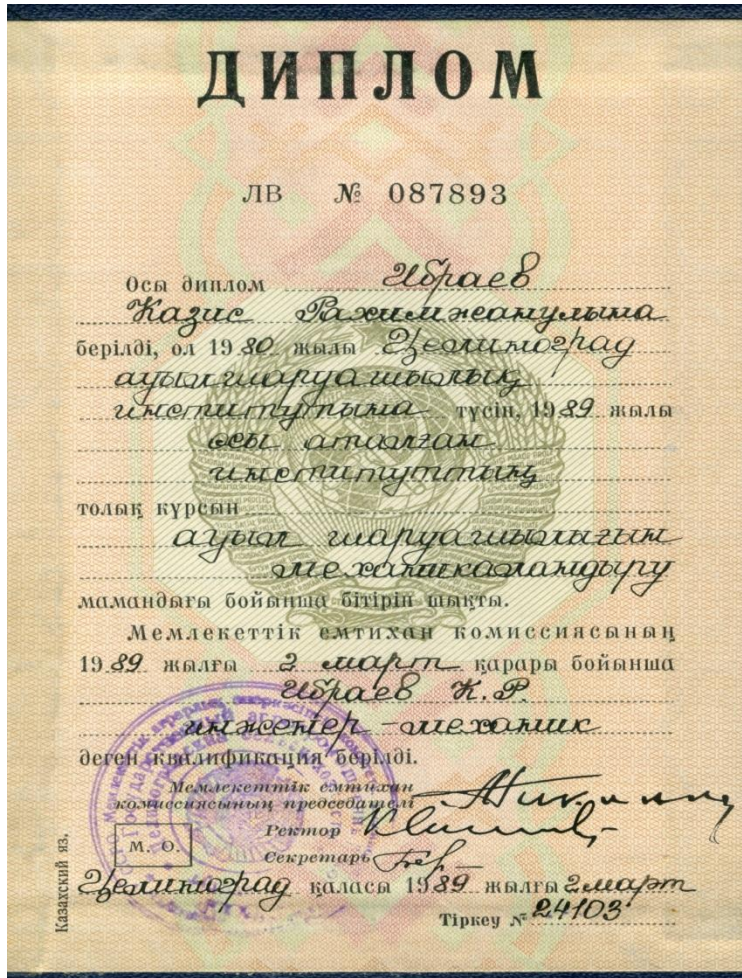 ДИПЛОМ
ЛВ № 087893
Осы диплом Ибраев
Казис Рахимжанулына
берілді, ол 1980 жылы Целиноград
ауыл шаруашылық
институтына түсіп, 1989 жылы
осы аталған
институттың
толық курсын
ауыл шаруашылығын
механикаландыру
мамандығы бойынша бітіріп шықты.
Мемлекеттік емтихан комиссиясының
1989 жылғы 2 март қарары бойынша
Ибраев К. Р.
инженер-механик
деген квалификация берілді.
Мемлекеттік емтихан
комиссиясының председателі
Ректор
М. О.
Секретарь
Целиноград қаласы 1989 жылғы 2 март
Тіркеу № 24103
Казахский яз.